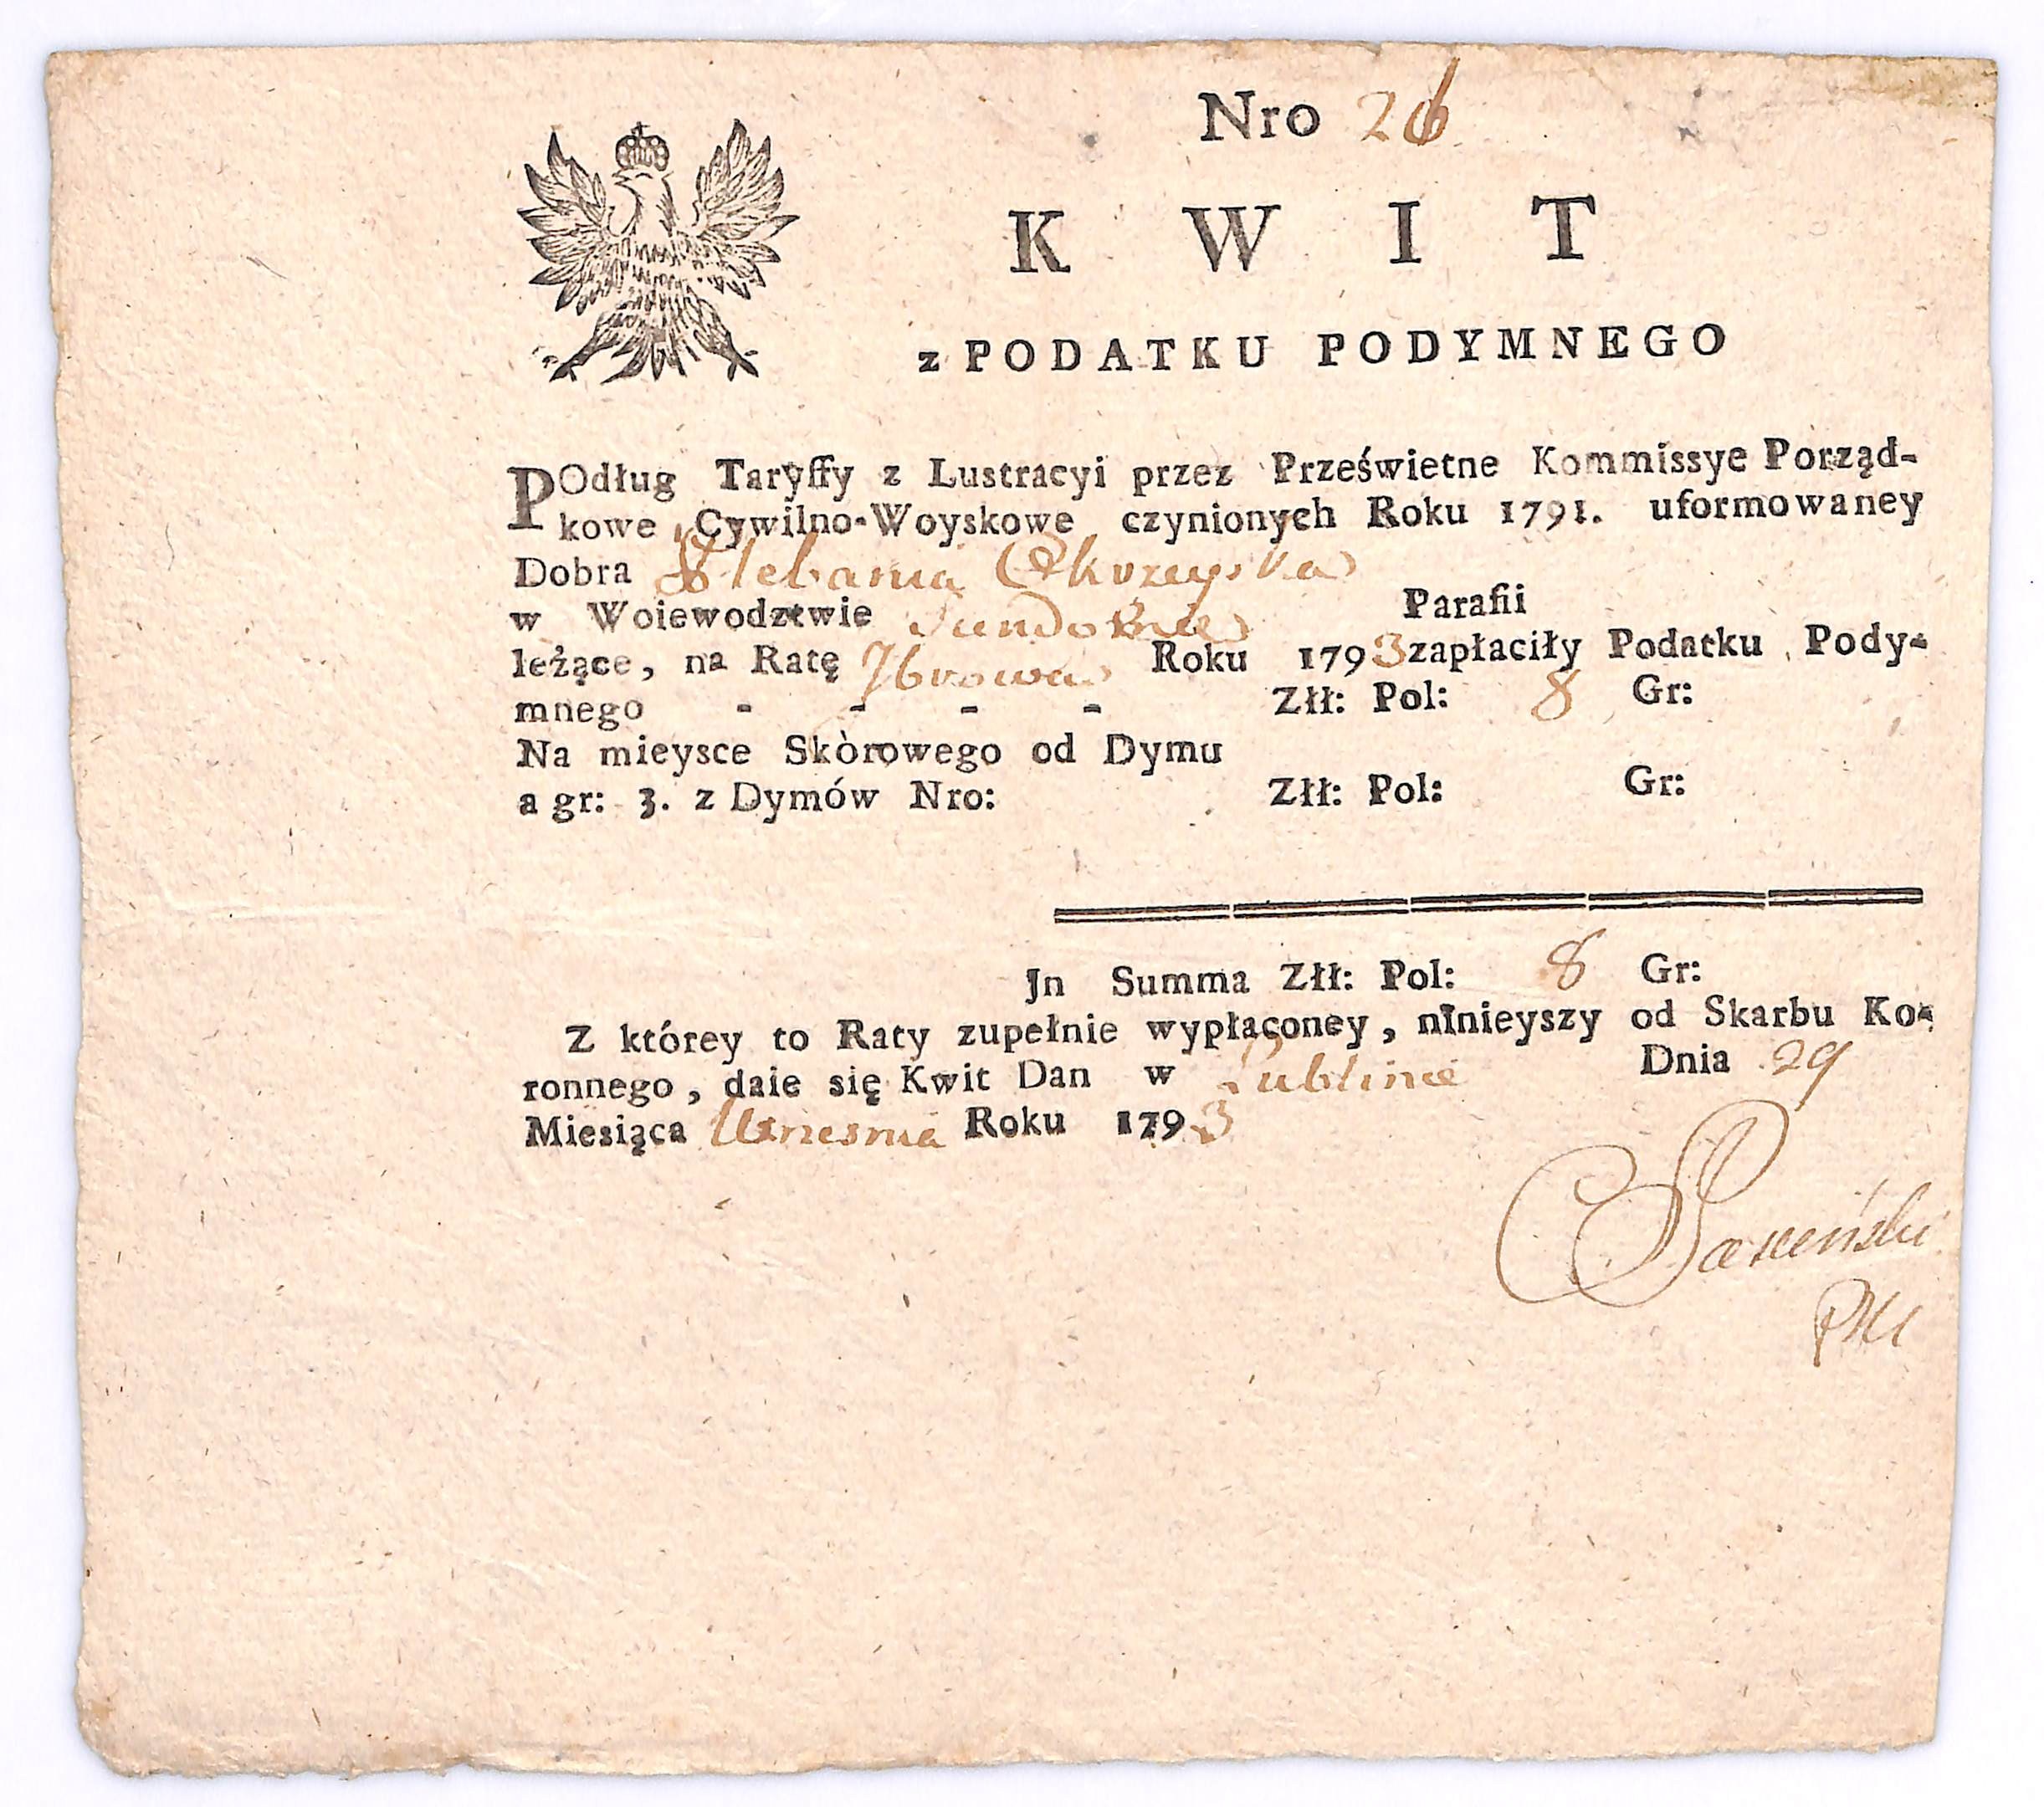 Nro 26
K W I T
z PODATKU PODYMNEGO
POdług Taryffy z Lustracyi przez Prześwietne Kommissye Porząd-
kowe Cywilno-Woyskowe czynionych Roku 1791. uformowaney
Dobra Plebania
w Woiewodztwie Parafii
leżące, na Ratę 7browa Roku 1793 zapłaciły Podatku Pody-
mnego - - - - Złł: Pol: 8 Gr:
Na mieysce Skòrowego od Dymu
a gr: 3. z Dymów Nro: Złł: Pol: Gr:
Jn Summa Złł: Pol: 8 Gr:
Z którey to Raty zupełnie wypłaconey, ninieyszy od Skarbu Ko-
ronnego, daie się Kwit Dan w Lublinie Dnia 29
Miesiąca Roku 1793